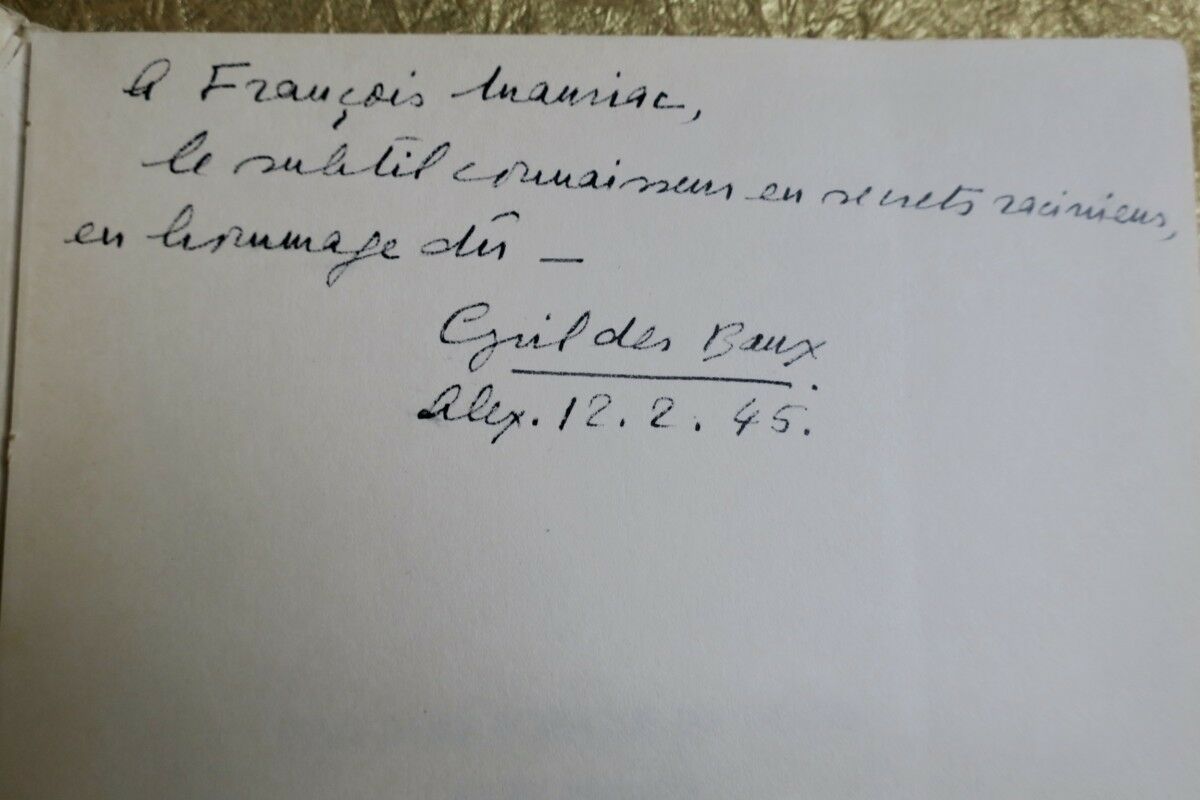 A François Mauriac,
le subtil connaisseur en secrets raciniens,
en hommage dû —
Cyril des Baux.
Alex. 12. 2. 45.